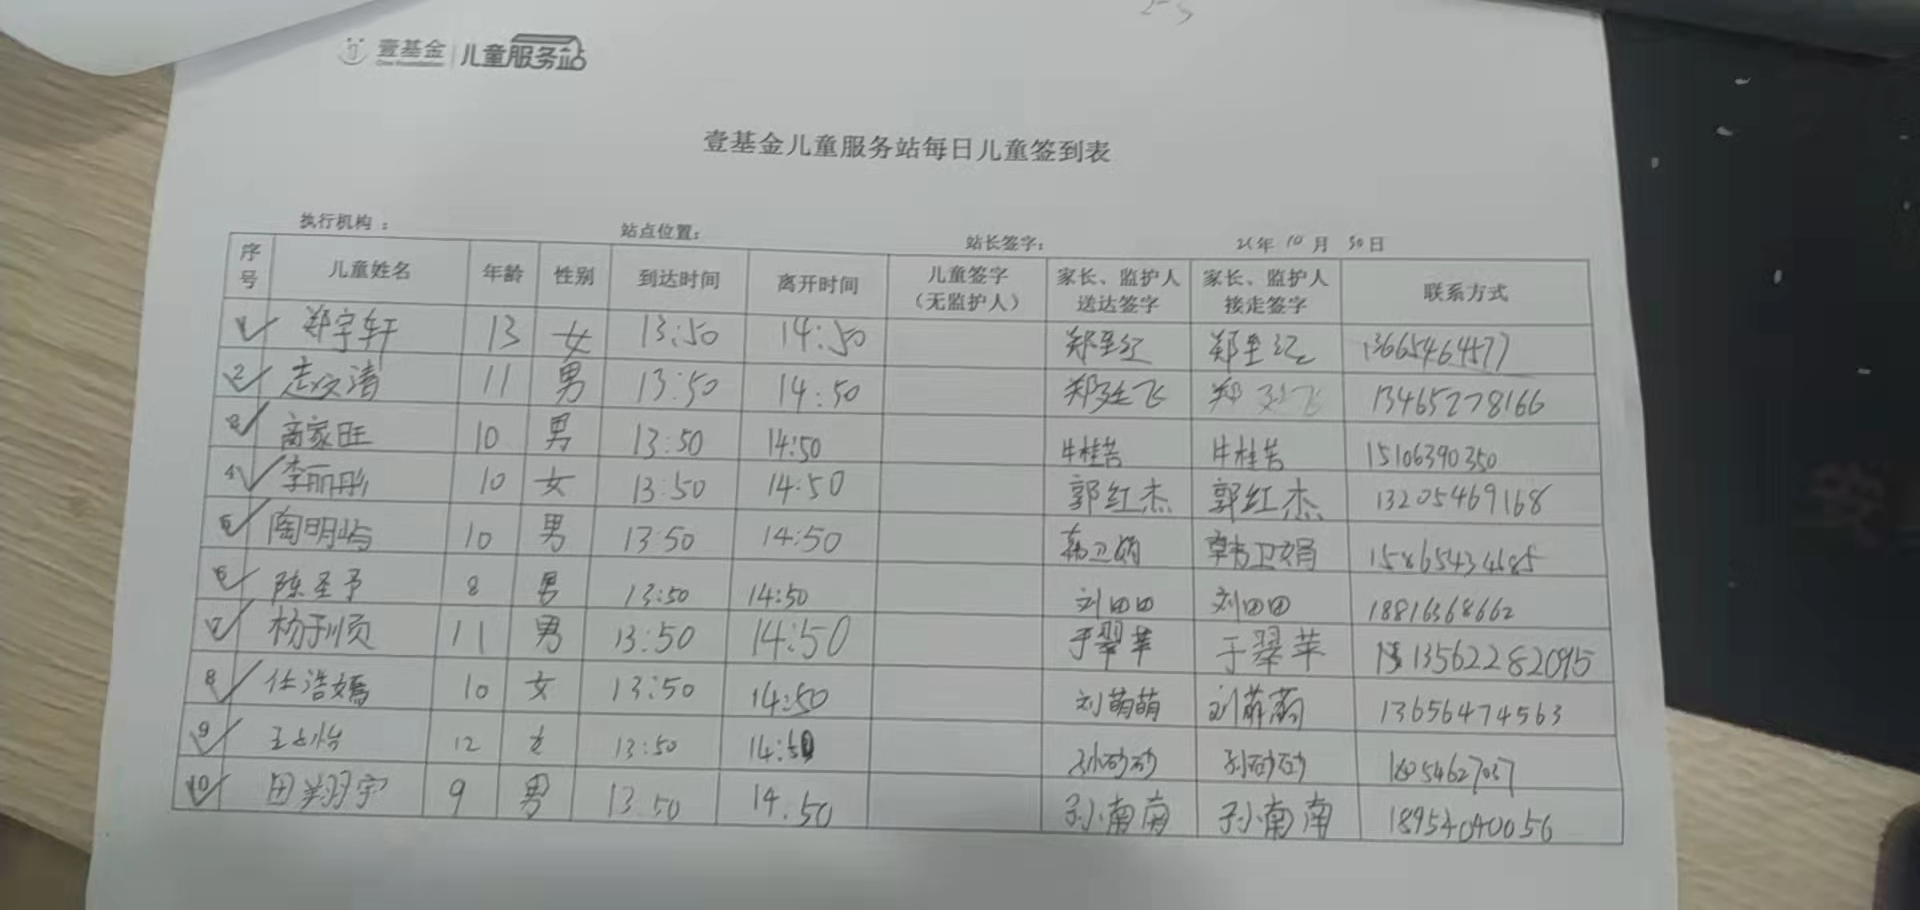 壹基金 儿童服务站
One Foundation
壹基金儿童服务站每日儿童签到表
执行机构： 站点位置： 站长签字： 年 10 月 30 日
序号 儿童姓名 年龄 性别 到达时间 离开时间 儿童签字（无监护人） 家长、监护人送达签字 家长、监护人接走签字 联系方式
1 郑宇轩 13 女 13:50 14:50
2 11 男 13:50 14:50 13465278166
3 商家旺 10 男 13:50 14:50 15106390350
4 李丽彤 10 女 13:50 14:50 郭红杰 郭红杰 13205469168
5 陶明屿 10 男 13:50 14:50 韩卫娟 韩卫娟
6 陈圣予 8 男 13:50 14:50 刘田田 刘田田 18816368662
7 杨于顺 11 男 13:50 14:50 于翠苹 于翠苹
8 任浩嫣 10 女 13:50 14:50 刘萌萌 刘萌萌 13656474563
9 12 女 13:50 14:50 孙砂砂 孙砂砂
10 田翔宇 9 男 13:50 14:50 孙南南 孙南南 18954040056